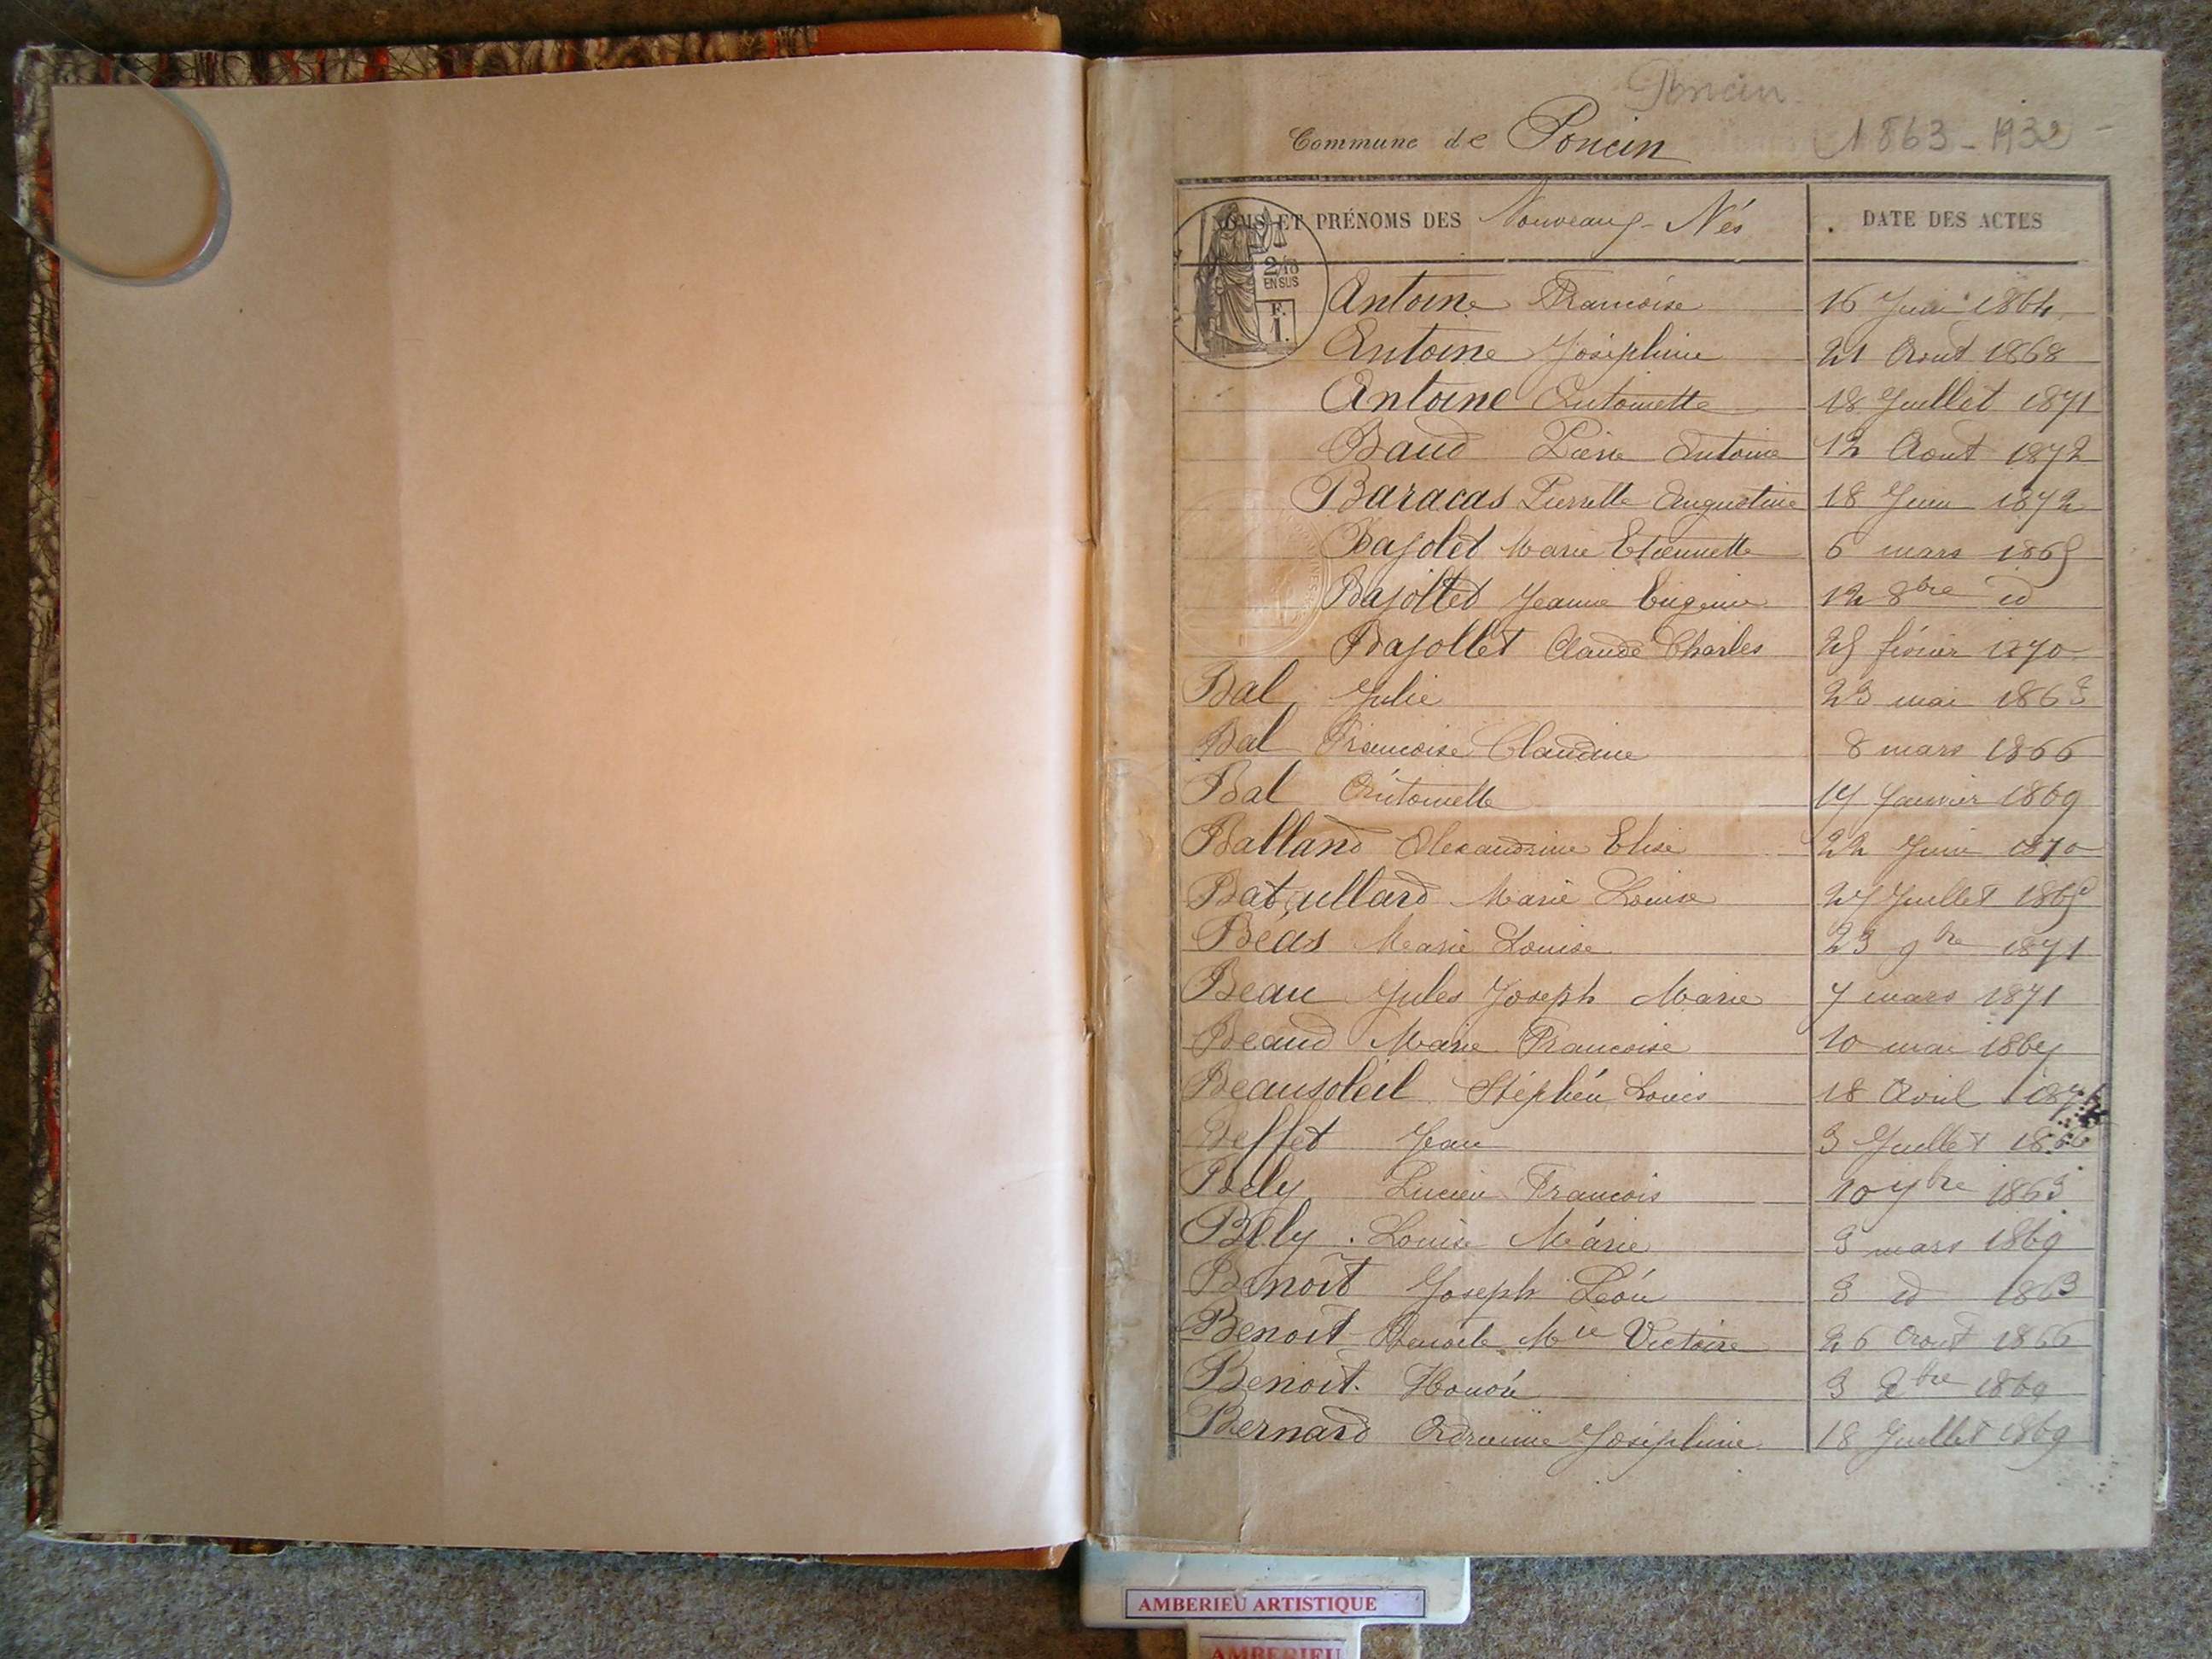 Poncin
Commune de Poncin 1863-1932
NOMS ET PRÉNOMS DES Nouveaux-Nés DATE DES ACTES
2/10
EN SUS
F.
1.
Antoine Francoise 16 Juin 1864
Antoine Joséphine 21 Aout 1868
Antoine Antoinette 18 Juillet 1871
Baud Pierre Antoine 12 Aout 1872
Baracas Pierrette Augustine 18 Juin 1872
Bajolet Marie Etiennette 6 mars 1865
Bajollet Jeanne Eugenie 12 8bre id
Bajollet Claude Charles 25 février 1870
Bal Julie 23 mai 1863
Bal Francoise Claudine 8 mars 1866
Bal Antoinette 17 Janvier 1869
Balland Alexandrine Elise 22 Juin 1870
Bataillard Marie Louise 27 Juillet 1865
Béas Marie Louise 23 9bre 1871
Beau Jules Joseph Marie 7 mars 1871
Beaud Marie Francoise 10 mai 1867
Beausoleil Stéphen Louis 18 Avril 1871
Beffet Jean 3 Juillet 1866
Bely Lucien Francois 10 7bre 1863
Bely Louise Marie 3 mars 1869
Benoit Joseph Léon 3 id 1863
Benoit Benoite Mie Victoire 26 Aout 1866
Benoit Honoré 3 1869
Bernard Adrienne Joséphine 18 Juillet 1869
AMBERIEU ARTISTIQUE
AMBERIEU